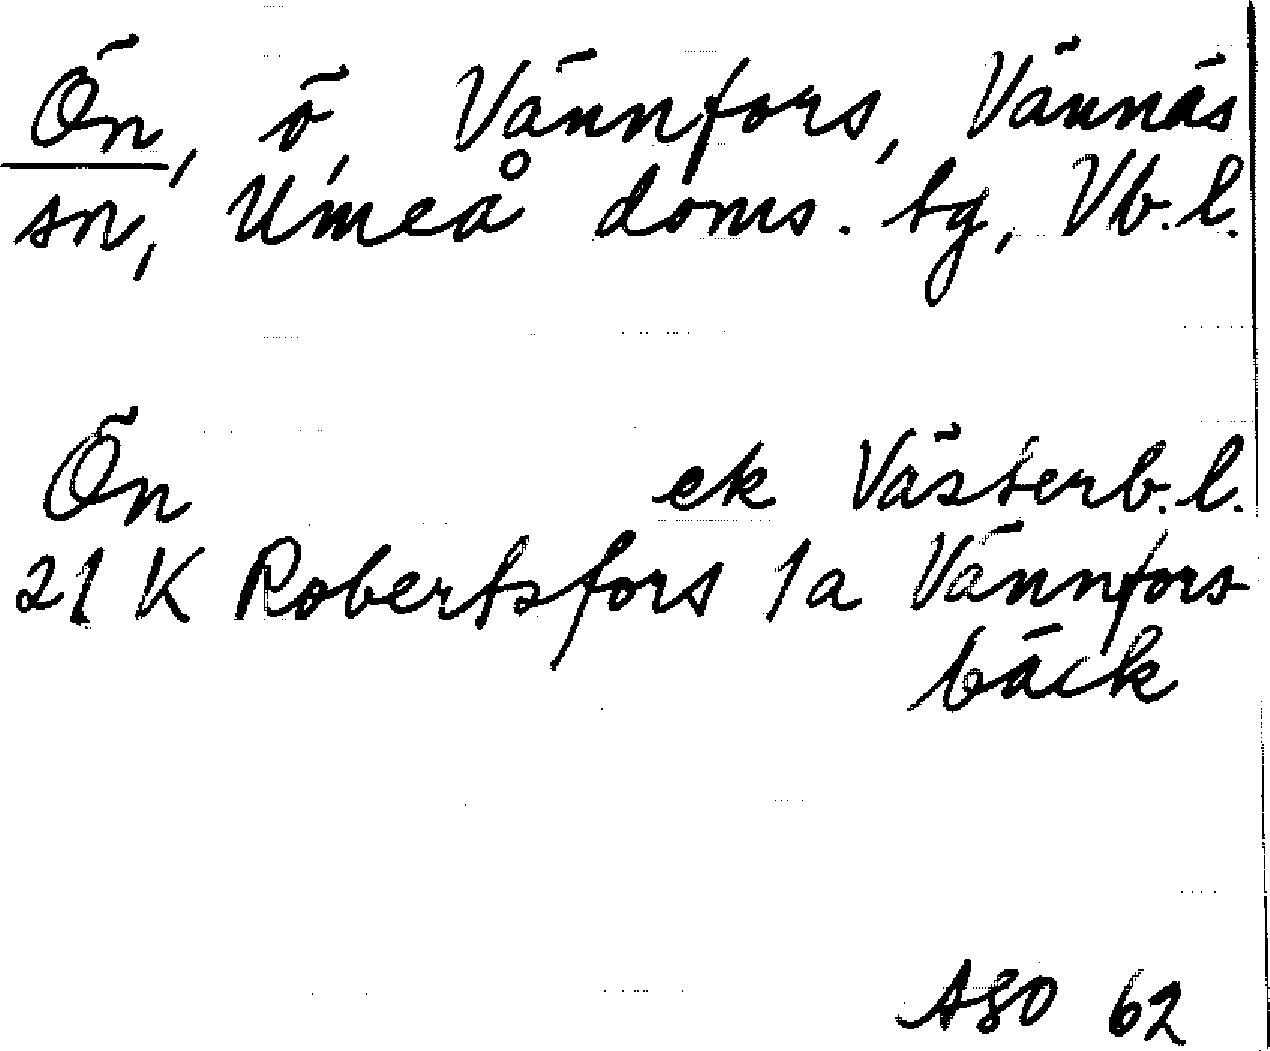 Ön, ö, Vännfors, Vännäs
sn, Umeå doms. tg, Vb.l.
Ön ek Västerb.l.
21 K Robertsfors 1a Vännfors-
bäck
ASO 62